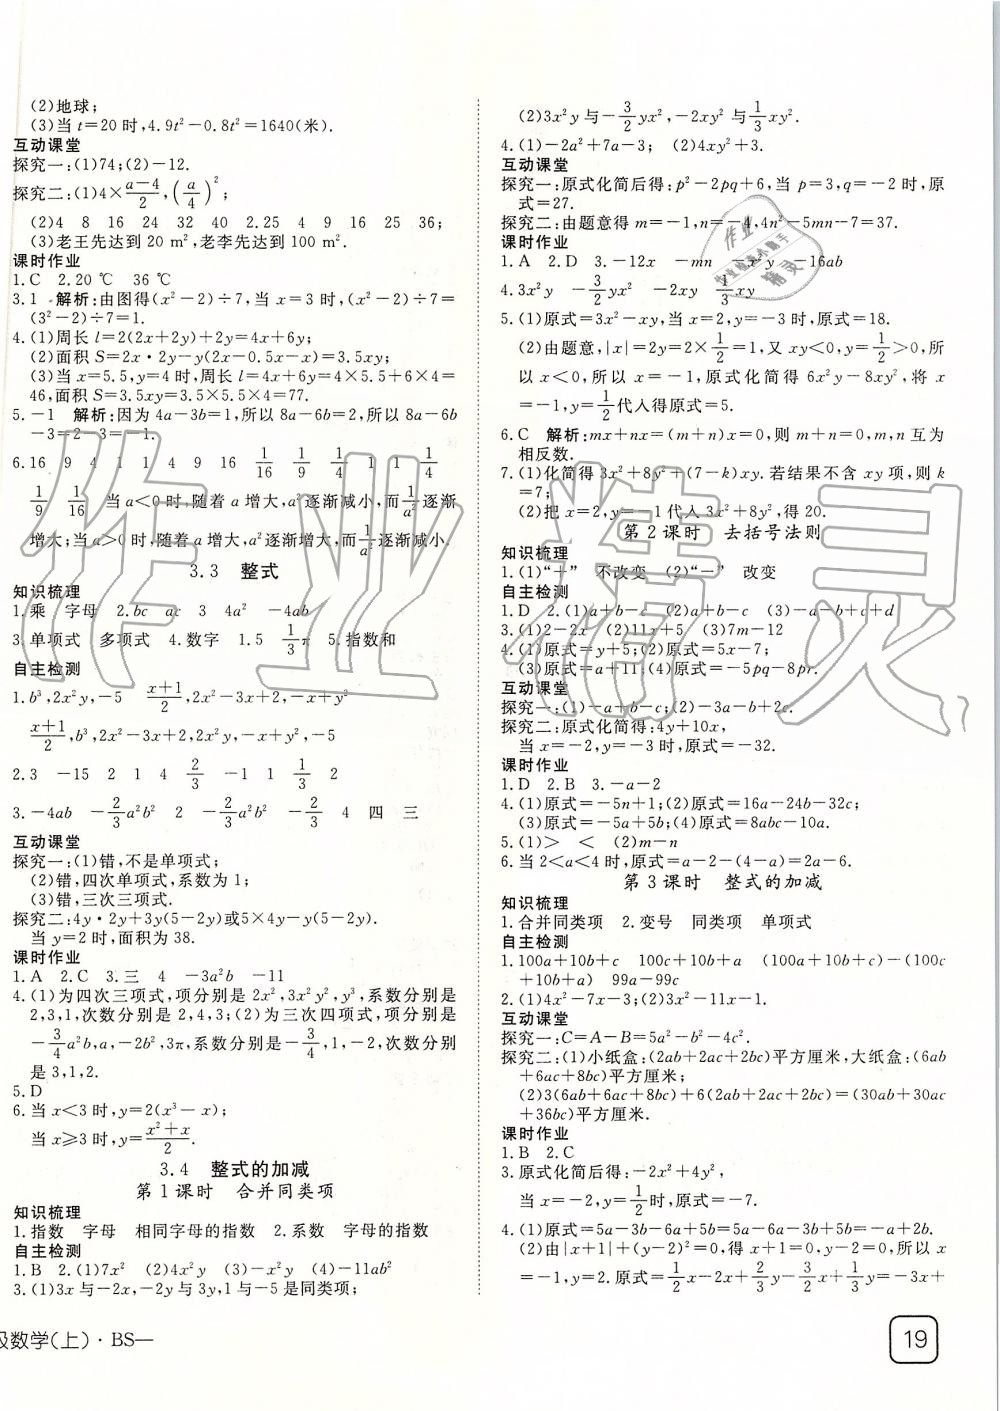 (2)地球;
(3)当 t=20 时,4.9t²-0.8t²=1640(米).
互动课堂
探究一:(1)74;(2)-12.
探究二:(1)4×(a-4)/2,(a/4)²;
(2)4 8 16 24 32 40 2.25 4 9 16 25 36;
(3)老王先达到 20 m²,老李先达到 100 m².
课时作业
1.C 2.20 ℃ 36 ℃
3.1 解析:由图得(x²-2)÷7,当 x=3 时,(x²-2)÷7=
(3²-2)÷7=1.
4.(1)周长 l=2(2x+2y)+2y=4x+6y;
(2)面积 S=2x·2y-y(2x-0.5x-x)=3.5xy;
(3)当 x=5.5,y=4 时,周长 l=4x+6y=4×5.5+6×4=
46,面积 S=3.5xy=3.5×5.5×4=77.
5.-1 解析:因为 4a-3b=1,所以 8a-6b=2,所以 8a-6b
-3=2-3=-1.
6.16 9 4 1 1 4 9 16 1/16 1/9 1/4 1 1 1/4
1/9 1/16 当 a<0 时,随着 a 增大,a²逐渐减小,而1/a²逐渐
增大;当 a>0 时,随着 a 增大,a²逐渐增大,而1/a²逐渐减小.
3.3 整式
知识梳理
1.乘 字母 2.bc ac 3 4a² -4ab
3.单项式 多项式 4.数字 1.5 1/3π 5.指数和
自主检测
1.b³,2x²y,-5 (x+1)/2,2x²-3x+2,-x+y²
(x+1)/2,b³,2x²-3x+2,2x²y,-x+y²,-5
2.3 -15 2 1 4 2/3 -1 1 1/3 2
3.-4ab -2/3a²b² -2/3 4 四 三
互动课堂
探究一:(1)错,不是单项式;
(2)错,四次单项式,系数为 1;
(3)错,三次三项式.
探究二:4y·2y+3y(5-2y)或5×4y-y(5-2y).
当 y=2 时,面积为 38.
课时作业
1.A 2.C 3.三 4 -3a²b -11
4.(1)为四次三项式,项分别是 2x²,3x²y²,y³,系数分别是
2,3,1,次数分别是 2,4,3;(2)为三次四项式,项分别是
-3/4a²b,a,-2b²,3π,系数分别是-3/4,1,-2,3π,次数分别
是 3,1,2.
5.D
6.当 x<3 时,y=2(x³-x);
当 x⩾3 时,y=(x²+x)/2.
3.4 整式的加减
第 1 课时 合并同类项
知识梳理
1.指数 字母 相同字母的指数 2.系数 字母的指数
自主检测
1.B 2.(1)7x² (2)4x²y (3)-x² (4)-11ab²
3.(1)3x 与-2x,-2y 与 3y,1 与-5 是同类项;
级数学(上)·BS—
(2)3x²y 与-3/2yx²,-2xy²与1/3xy².
4.(1)-2a²+7a-3; (2)4xy²+3.
互动课堂
探究一:原式化简后得:p²-2pq+6,当 p=3,q=-2 时,原
式=27.
探究二:由题意得 m=-1,n=-4,4n²-5mn-7=37.
课时作业
1.A 2.D 3.-12x -m -x²y -16ab
4.3x²y -3/2yx² -2xy 1/3xy
5.(1)原式=3x²-xy,当 x=2,y=-3 时,原式=18.
(2)由题意,|x|=2y=2×1/2=1,又 xy<0,y=1/2>0,所
以 x<0,所以 x=-1,原式化简得 6x²y-8xy²,将 x
=-1,y=1/2代入得原式=5.
6.C 解析:mx+nx=(m+n)x=0,则 m+n=0,m,n 互为
相反数.
7.(1)化简得 3x²+8y²+(7-k)xy.若结果不含 xy 项,则 k
=7;
(2)把 x=2,y=-1 代入 3x²+8y²,得 20.
第 2 课时 去括号法则
知识梳理
1.(1)“+” 不改变 (2)“-” 改变
自主检测
1.D 2.(1)a+b-c (2)a+b-c (3)-a-b+c+d
3.(1)2-2x (2)11x+5 (3)7m-12
4.(1)原式=y+5;(2)原式=5x-7;
(3)原式=a+11;(4)原式=-5pq-8pr.
互动课堂
探究一:(1)-a+b-c;(2)-3a-b+2c.
探究二:原式化简得:4y+10x,
当 x=-2,y=-3 时,原式=-32.
课时作业
1.D 2.B 3.-a-2
4.(1)原式=-5n+1;(2)原式=16a-24b-32c;
(3)原式=-5a+5b;(4)原式=8abc-10a.
5.(1)> < (2)m-n
6.当 2<a<4 时,原式=a-2-(4-a)=2a-6.
第 3 课时 整式的加减
知识梳理
1.合并同类项 2.变号 同类项 单项式
自主检测
1.100a+10b+c 100c+10b+a (100a+10b+c)-(100c
+10b+a) 99a-99c
2.(1)4x²-7x-3;(2)3x²-11x-1.
互动课堂
探究一:C=A-B=5a²-b²-4c².
探究二:(1)小纸盒:(2ab+2ac+2bc)平方厘米,大纸盒:(6ab
+6ac+8bc)平方厘米;
(2)3(6ab+6ac+8bc)+6(2ab+2ac+2bc)=(30ab+30ac
+36bc)平方厘米.
课时作业
1.B 2.C
3.原式化简后得:-2x²+4y²,
当 x=-2,y=1/2时,原式=-7.
4.(1)原式=5a-3b-6a+5b=5a-6a-3b+5b=-a+2b.
(2)由|x+1|+(y-2)²=0,得 x+1=0,y-2=0,所以 x
=-1,y=2.原式=1/2x-2x+2/3y-3/2x+1/3y=-3x+
19
作业精灵